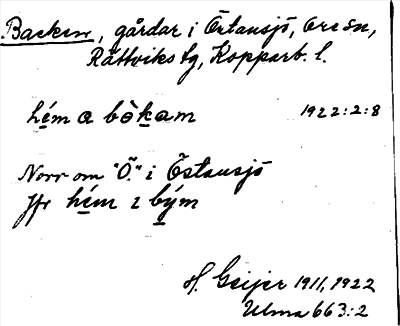 Backen, gårdar i Östansjö, Ore sn,
Rättviks tg, Kopparb. l.
hém a bòkam 1922:2:8
Norr om "Ö." i Östansjö
Jfr hém i bým
H. Geijer 1911, 1922
Ulma 663:2